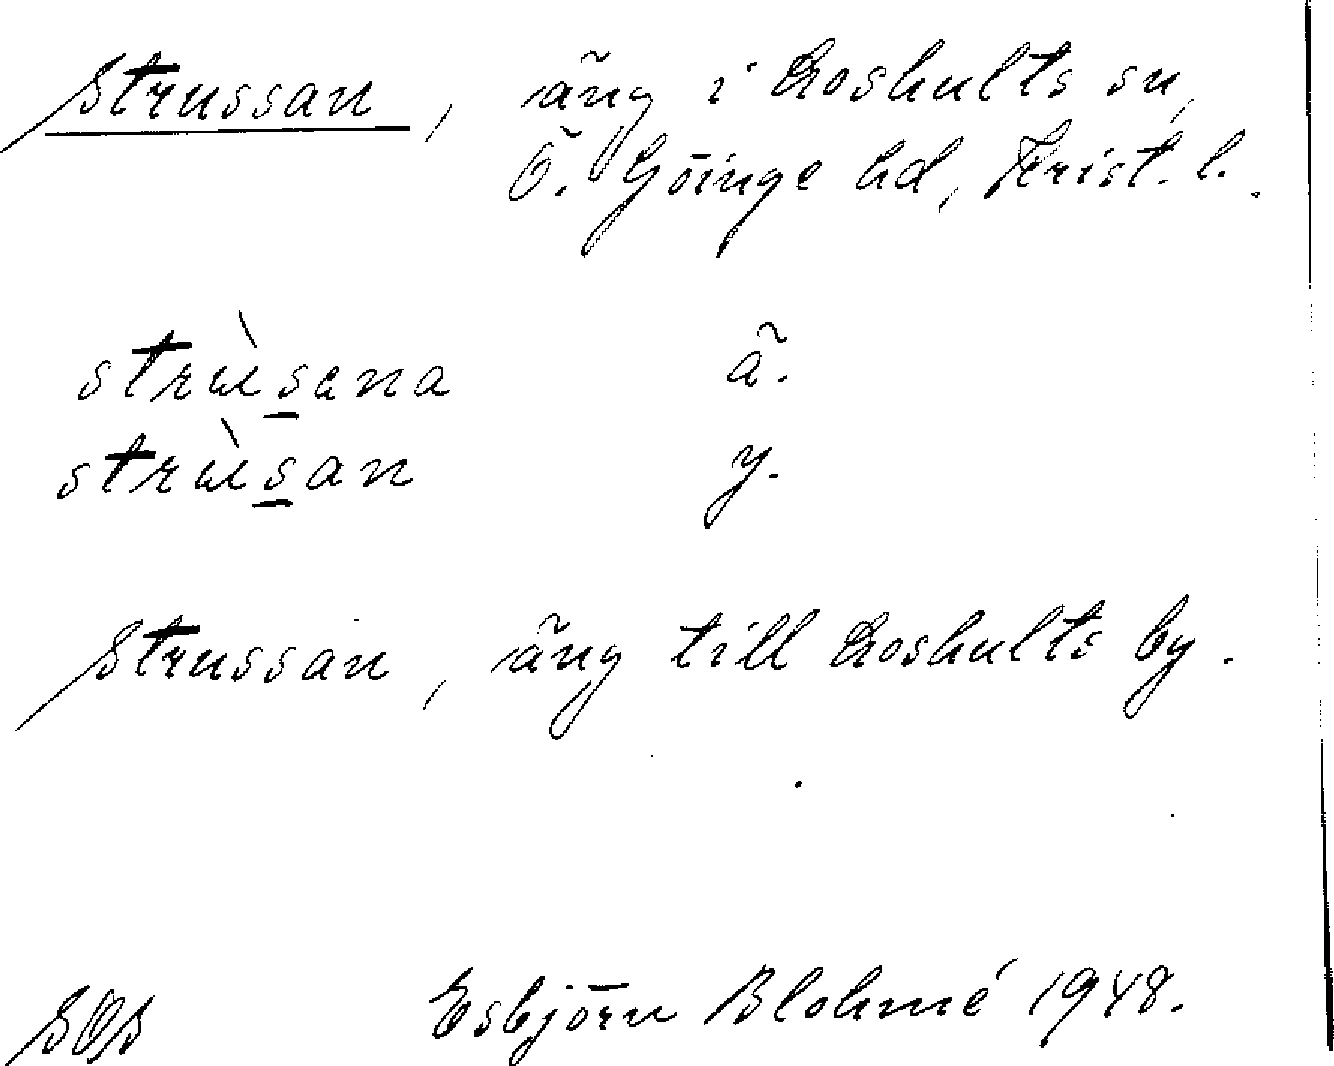 Strussan, äng i Loshults sn,
Ö. Göinge hd, Krist. l.
strùsana ä.
strùsan y.
Strussan, äng till Loshults by.
SOS Esbjörn Blohmé 1948.